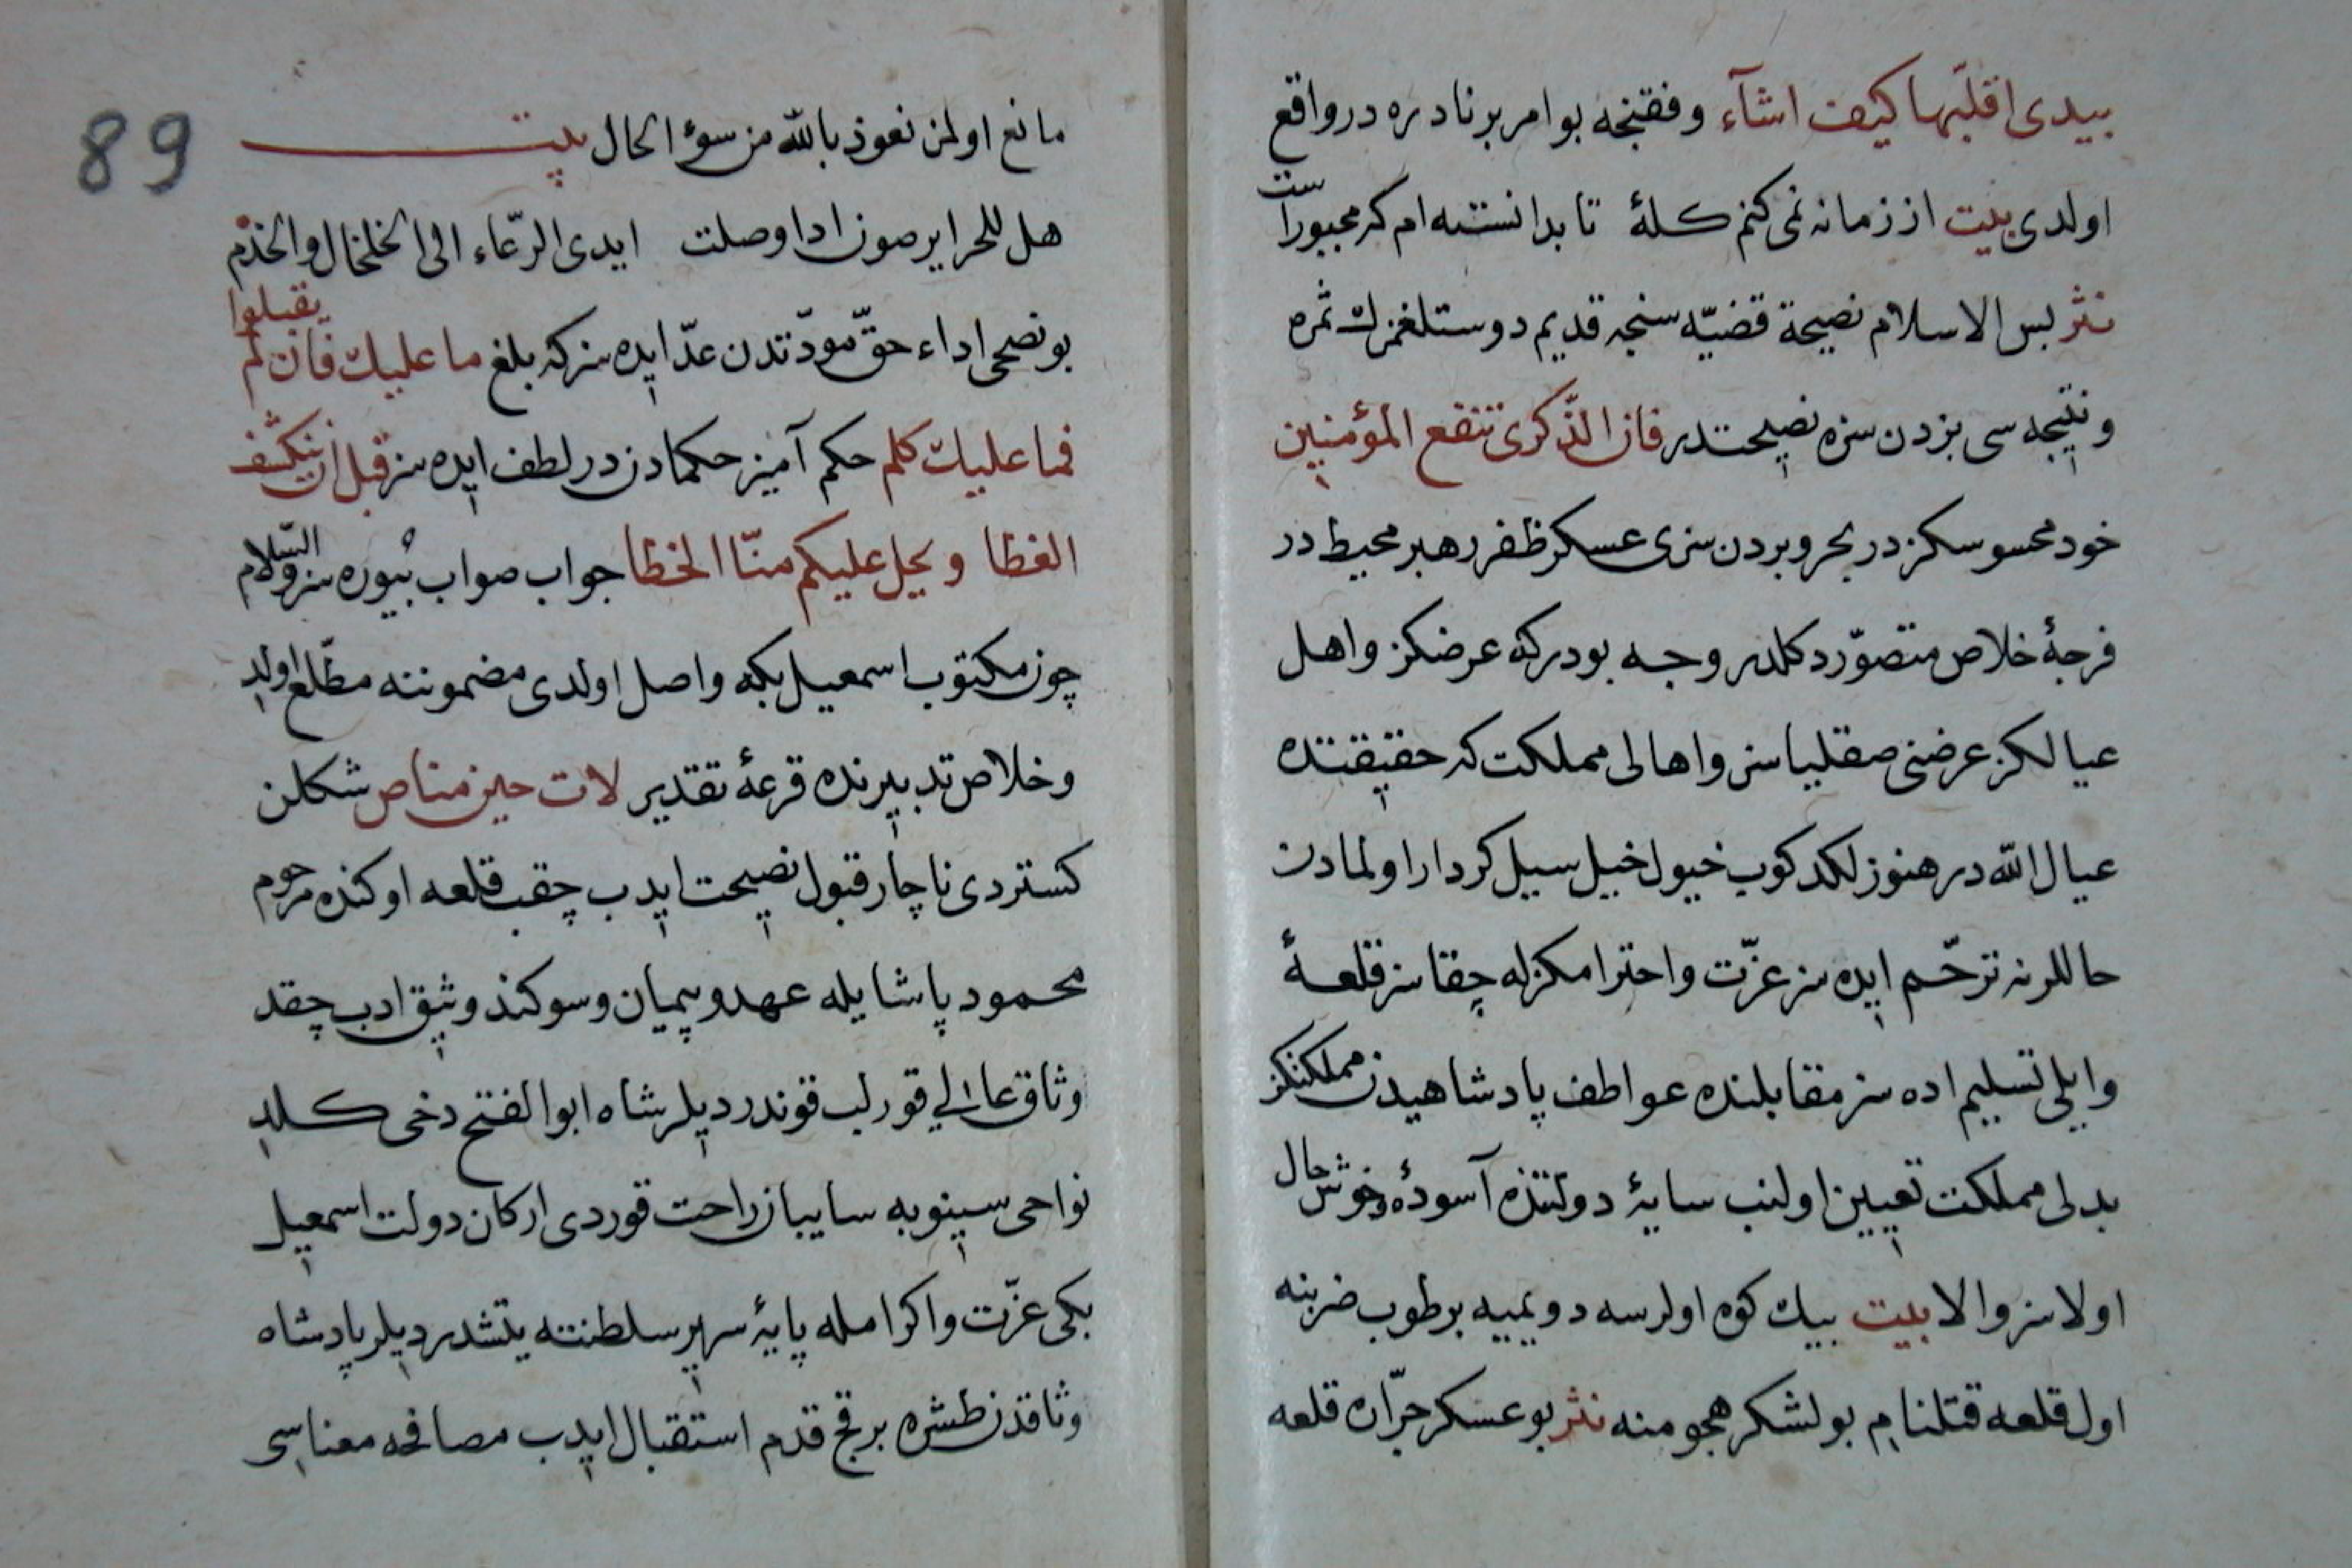 بیدی اقلّبها کیف اشآء وفقنجه بوامر بر نادره در واقع
اولدی بیت از زمانه نمی کنم کلهٔ تا بدانسته ام که مجبوراست
نثر بس الاسلام نصیحة قضیّه سنجه قدیم دوستلغمزك ثمره
ونتیجه سی بزدن سزه نصیحتدر فان الذّکری تنفع المؤمنین
خود محسوسکزدر بحر وبردن سزی عسکر ظفر رهبر محیط در
فرجهٔ خلاص متصوّر دکلدر وجه بودرکه عرضکز واهل
عیالکز عرضنی صقلیاسز واهالی مملکت که حقیقتده
عیال الله در هنوز لکدکوب خیول خیل سیل کردار اولمادن
حاللرنه ترحّم ایده سز عزّت واحترامکزله چقاسز قلعهٔ
وایلی تسلیم اده سز مقابلنده عواطف پادشاهیدن مملکتکز
بدلی مملکت تعیین اولنب سایهٔ دولتنده آسوده وخوش حال
اولاسز والا بیت بیك کوه اولرسه دویمیه بر طوب ضربنه
اول قلعه قتلنام بولشکر هجومنه نثر بو عسکر جرّاره قلعه
89
مانع اولمز نعوذ بالله من سوء الحال بیت
هل للحرایر صون اذا وصلت ایدی الرّعاء الی الخلخال والخذم
بو نصحی اداء حقّ مودّتدن عدّ ایده سز که بلغ ما علیك فان لم یقبلوا
فما علیك کلم حکم آمیز حکمادن در لطف ایده سز قبل ان ینکشف
الغطا ویحل علیکم منّا الخطا جواب صواب بیوره سز والسّلام
چون مکتوب اسمعیل بکه واصل اولدی مضموننه مطّلع اولدی
وخلاص تدبیرنده قرعهٔ تقدیر لات حین مناص شکلن
کستردی ناچار قبول نصیحت ایدب چقب قلعه اوکنده مرحوم
محمود پاشایله عهد وپیمان وسوکند وثیق ادب چقد
وثاق عالی قورلب قوندردیلر شاه ابوالفتح دخی کلدی
نواحی سینوبه سایبان راحت قوردی ارکان دولت اسمعیل
بکی عزّت واکرامله پایهٔ سریر سلطنته یتشدردیلر پادشاه
وثاقدن طشره بر قچ قدم استقبال ایدب مصافحه معناسی